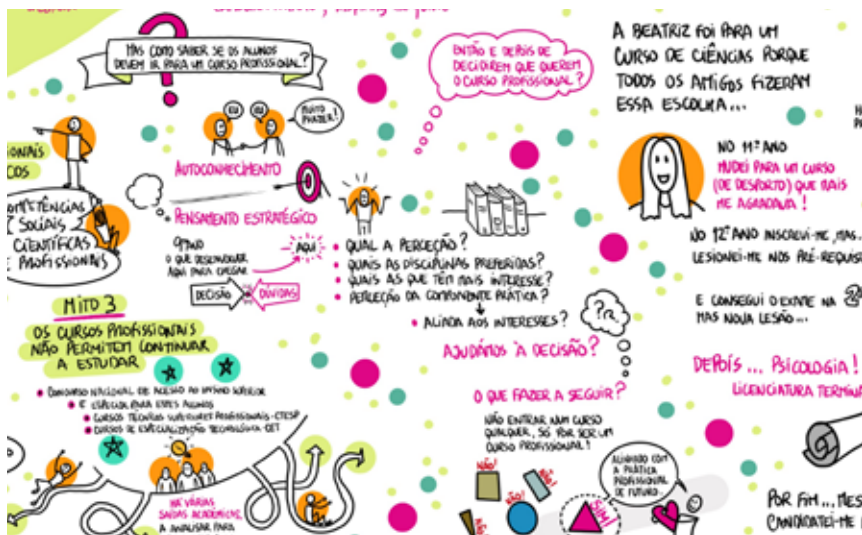 MAS COMO SABER SE OS ALUNOS
DEVEM IR PARA UM CURSO PROFISSIONAL?
EU
EU
MUITO
PRAZER!
AUTOCONHECIMENTO
PENSAMENTO ESTRATÉGICO
9º ANO
O QUE DESENVOLVER
AQUI PARA CHEGAR
AQUI
DECISÃO
DÚVIDAS
IONAIS
COS
COMPETÊNCIAS
SOCIAIS
CIENTÍFICAS
E PROFISSIONAIS
MITO 3
OS CURSOS PROFISSIONAIS
NÃO PERMITEM CONTINUAR
A ESTUDAR
CONCURSO NACIONAL DE ACESSO AO ENSINO SUPERIOR
E ESPECIAL PARA ESTES ALUNOS
CURSOS TÉCNICOS SUPERIORES PROFISSIONAIS-CTESP
CURSOS DE ESPECIALIZAÇÃO TECNOLÓGICA-CET
HÁ VÁRIAS
SAÍDAS ACADÉMICAS,
A ANALISAR PARA
ENTÃO E DEPOIS DE
DECIDIREM QUE QUEREM
O CURSO PROFISSIONAL?
QUAL A PERCEÇÃO?
QUAIS AS DISCIPLINAS PREFERIDAS?
QUAIS AS QUE TÊM MAIS INTERESSE?
PERCEÇÃO DA COMPONENTE PRÁTICA?
ALIADA AOS INTERESSES?
AJUDÁMOS À DECISÃO?
O QUE FAZER A SEGUIR?
NÃO ENTRAR NUM CURSO
QUALQUER, SÓ POR SER UM
CURSO PROFISSIONAL!
NÃO!
NÃO!
NÃO!
NÃO!
SIM!
ALINHADO COM
A PRÁTICA
PROFISSIONAL
DE FUTURO
A BEATRIZ FOI PARA UM
CURSO DE CIÊNCIAS PORQUE
TODOS OS AMIGOS FIZERAM
ESSA ESCOLHA...
NO 11º ANO
MUDEI PARA UM CURSO
(DE DESPORTO) QUE MAIS
ME AGRADAVA!
NO 12º ANO INSCREVI-ME, MAS...
LESIONEI-ME NOS PRÉ-REQUIS
E CONSEGUI O EXAME NA 2ª
MAS NOVA LESÃO...
DEPOIS... PSICOLOGIA!
LICENCIATURA TERMINA
POR FIM... MES
CANDIDATEI-ME